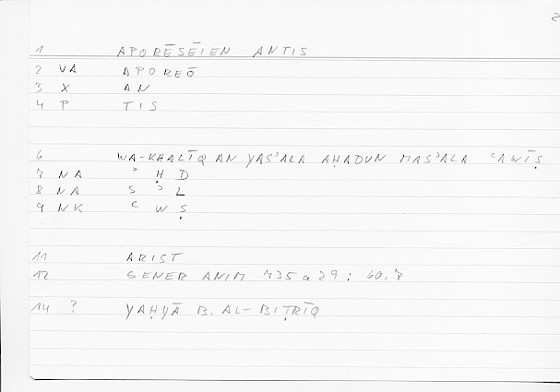 2
1 APORĒSEIEN ANTIS
2 VA APOREŌ
3 X AN
4 P TIS
6 WA-KHALĪQ AN YAS'ALA AḤADUN MAS'ALA ʿAWĪṢ
7 NA ʾ Ḥ D
8 NA S ʾ L
9 NK ʿ W Ṣ
11 ARIST
12 GENER ANIM 735 a 29 : 60.7
14 ? YAḤYĀ B. AL-BIṬRĪQ